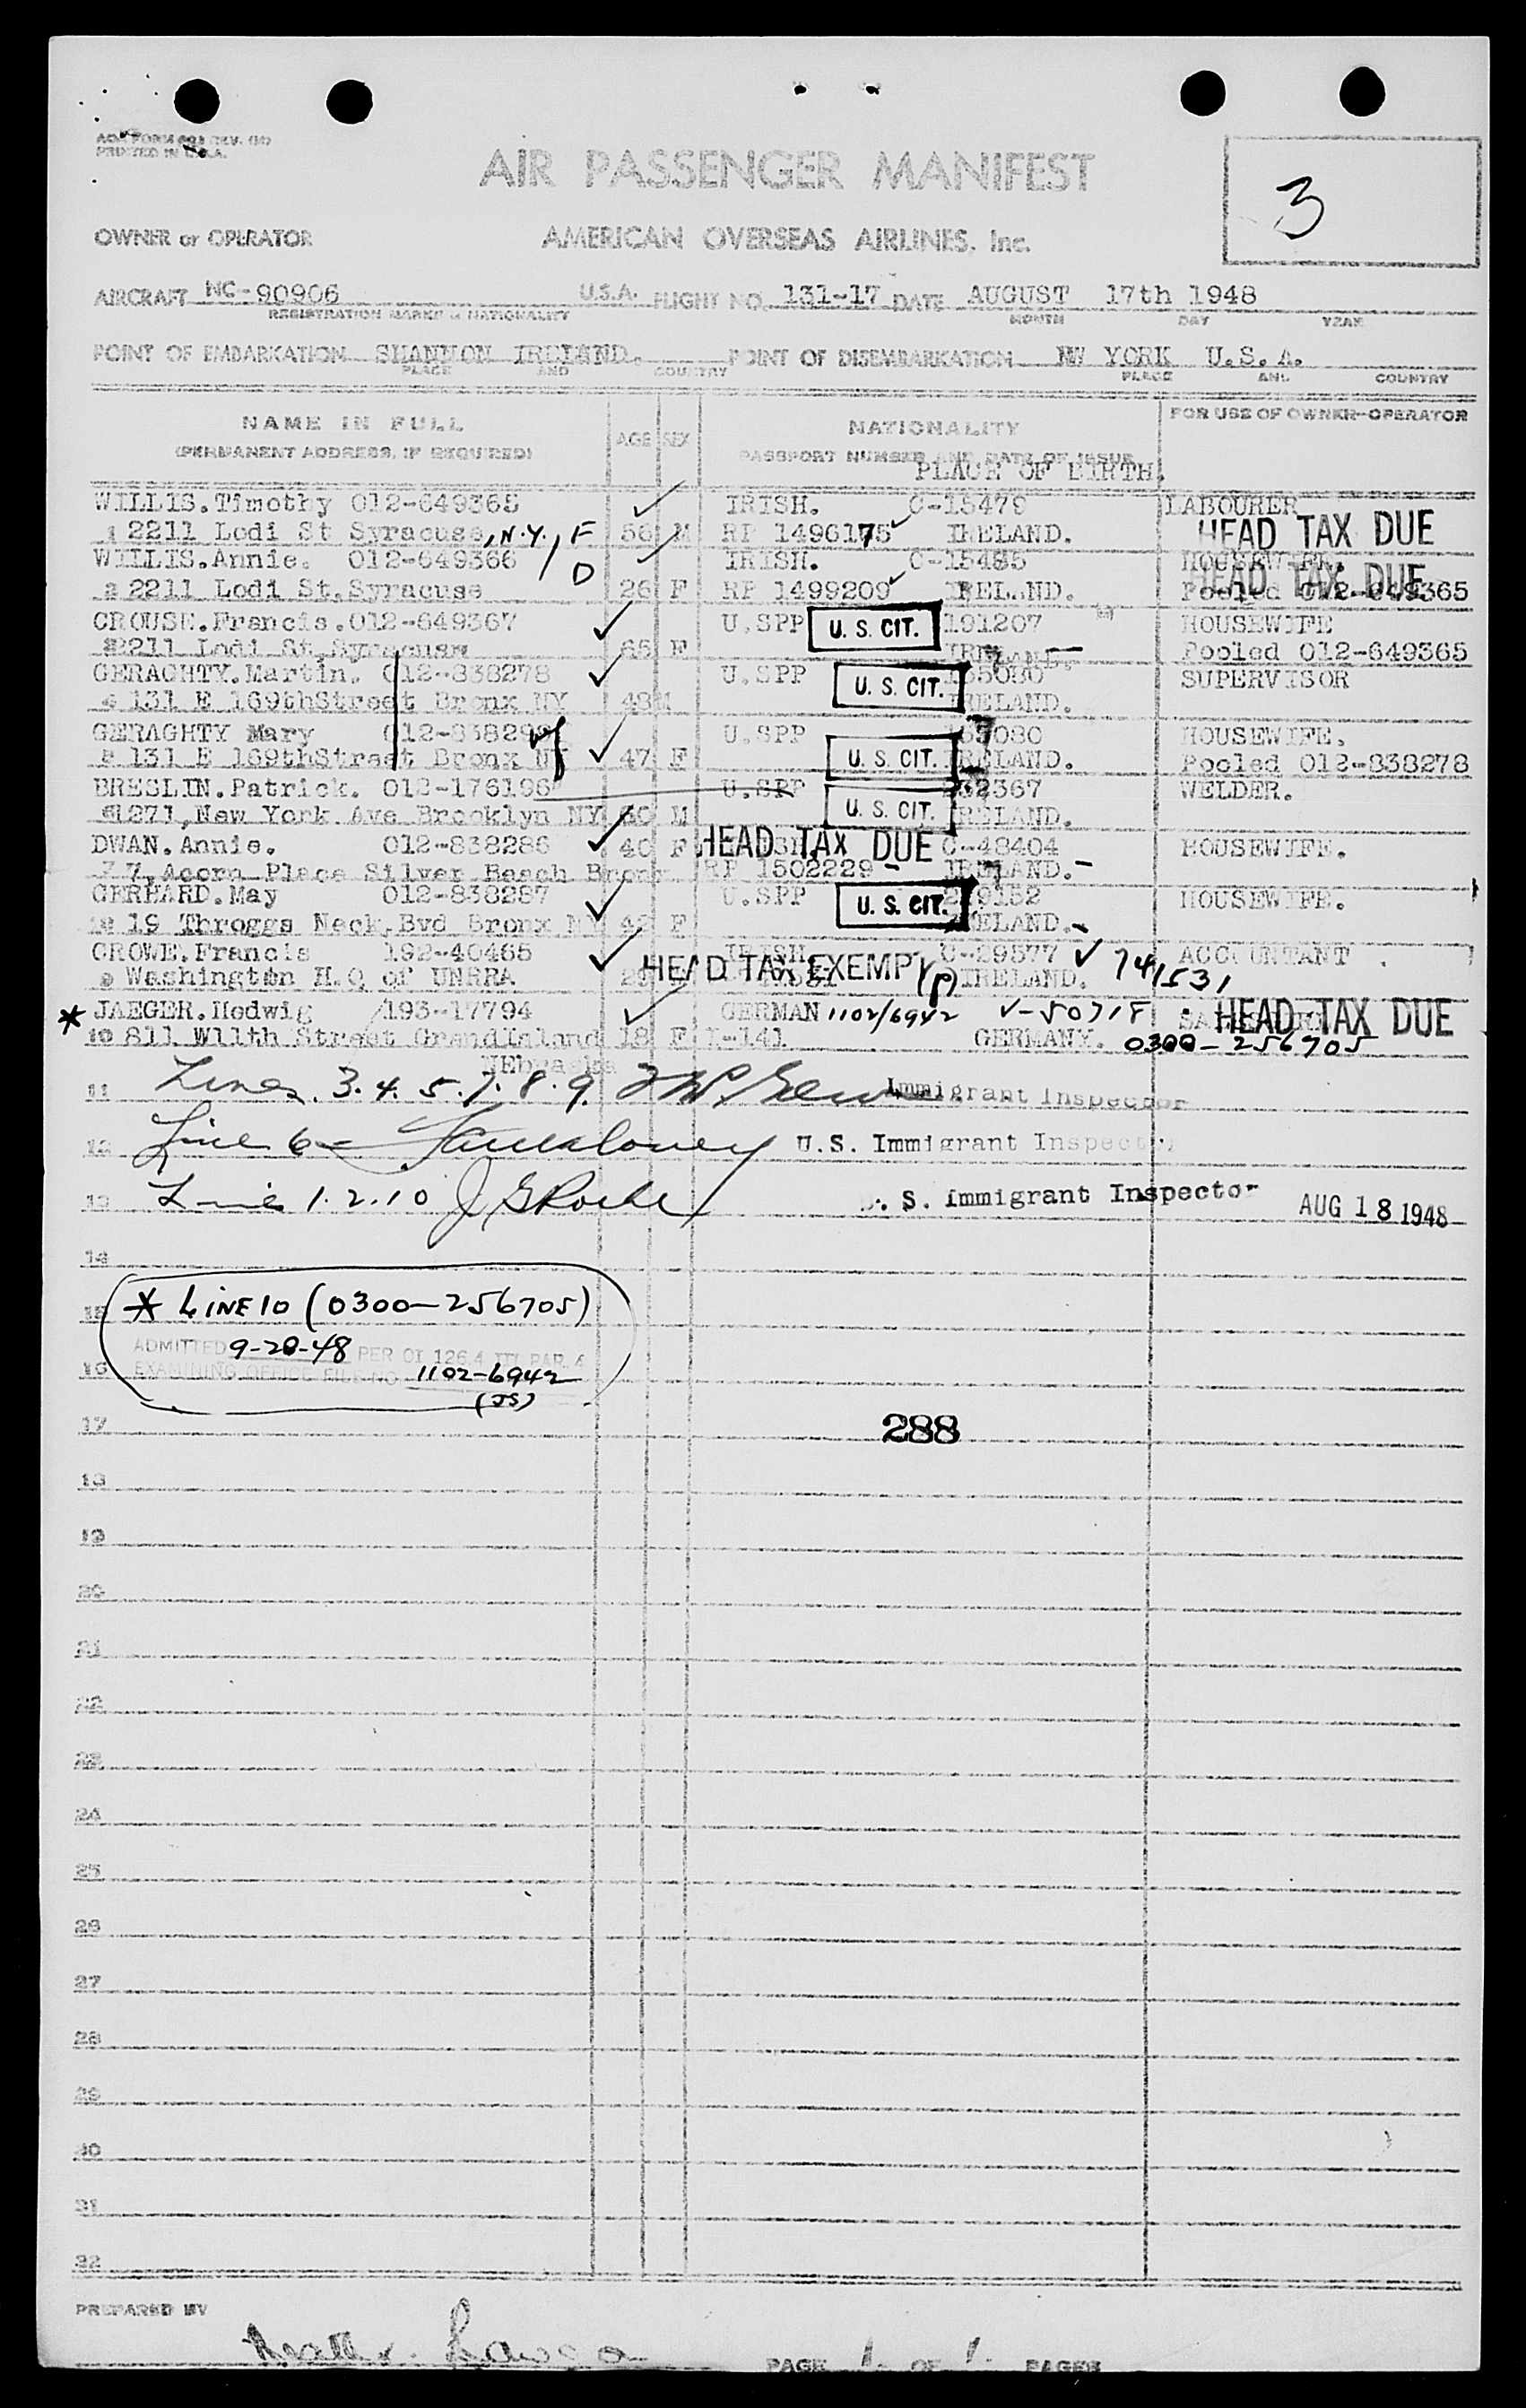 AOA FORM REV.
PRINTED IN U.S.A.
AIR PASSENGER MANIFEST
3
OWNER or OPERATOR AMERICAN OVERSEAS AIRLINES, Inc.
AIRCRAFT NC-90906 U.S.A. FLIGHT NO. 131-17 DATE AUGUST 17th 1948
REGISTRATION MARKS & NATIONALITY MONTH DAY YEAR
POINT OF EMBARKATION SHANNON IRELAND. POINT OF DISEMBARKATION NW YORK U.S.A.
PLACE AND COUNTRY PLACE AND COUNTRY
NAME IN FULL AGE SEX NATIONALITY FOR USE OF OWNER-OPERATOR
(PERMANENT ADDRESS, IF REQUIRED) PASSPORT NUMBER AND DATE OF ISSUE
PLACE OF BIRTH.
WILLIS.Timothy 012-649365 IRISH. C-15479 LABOURER
1 2211 Lodi St Syracuse, N.Y., F 56 M RP 1496175 IRELAND. HEAD TAX DUE
WILLIS.Annie. 012-649366 / D IRISH. C-15485 HOUSEWIFE. HEAD TAX DUE
2 2211 Lodi St.Syracuse 26 F RP 1499209 Pooled 012-649365
CROUSE.Francis.012-649367 U.SPP U. S. CIT. 191207 HOUSEWIFE
2211 Lodi St,Syracuse 65 F Pooled 012-649365
GERAGHTY.Martin. 012-838278 U.SPP U. S. CIT. SUPERVISOR
4 131 E 169thStreet Bronx NY 48M IRELAND.
GERAGHTY Mary U.SPP HOUSEWIFE.
131 E 169thStreet Bronx NY 47 F U. S. CIT. IRELAND. Pooled 012-838278
BRESLIN.Patrick. 012-176196 U.SPP 232367 WELDER.
1271,New York Ave Brooklyn NY M U. S. CIT. IRELAND.
DWAN.Annie. 012-838286 40 F HEAD TAX DUE C-48404 HOUSEWIFE.
7, Accra Place Silver Beach Bronx RP 1502229 - IRELAND. -
GERHARD.May 012-838287 U.SPP U. S. CIT. HOUSEWIFE.
19 Throggs Neck,Bvd Bronx NY F IRELAND.
CROWE.Francis 192-40465 IRISH HEAD TAX EXEMPT (p) C-29577 741531 ACCOUNTANT
Washington H.Q of UNRRA IRELAND.
* JAEGER.Hedwig 193-17794 GERMAN 1102/6942 V-50718 HEAD TAX DUE
10 811 W11th Street GrandIsland 18 F I-141 GERMANY. 0300-256705
NEbraska
11 Lines. 3.4.5.7.8.9. Immigrant Inspector
12 Line 6 U.S. Immigrant Inspector
13 Line 1.2.10 J G Roche U. S. Immigrant Inspector AUG 18 1948
14
15 * LINE 10 (0300-256705)
ADMITTED 9-28-48 PER OI 126.4 PAR. 4
16 EXAMINING OFFICE FILE NO 1102-6942
(JS)
17 288
18
19
20
21
22
23
24
25
26
27
28
29
30
31
32
PREPARED BY
PAGE 1. OF 1. PAGES